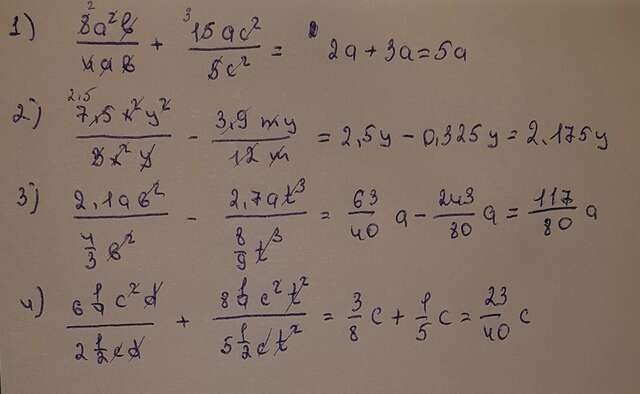 1) 8a²в/4ав + 15ac²/5c² = 2a + 3a = 5a
2) 7,5x²y²/3x²y - 3,9my/12m = 2,5y - 0,325y = 2.175y
3) 2,1ав²/(4/3 в²) - 2,7at³/(8/9 t³) = 63/40 a - 243/80 a = 117/80 a
4) 6 1/4 c²d/(2 1/2 cd) + 8 1/4 c²t²/(5 1/2 ct²) = 3/8 c + 1/5 c = 23/40 c